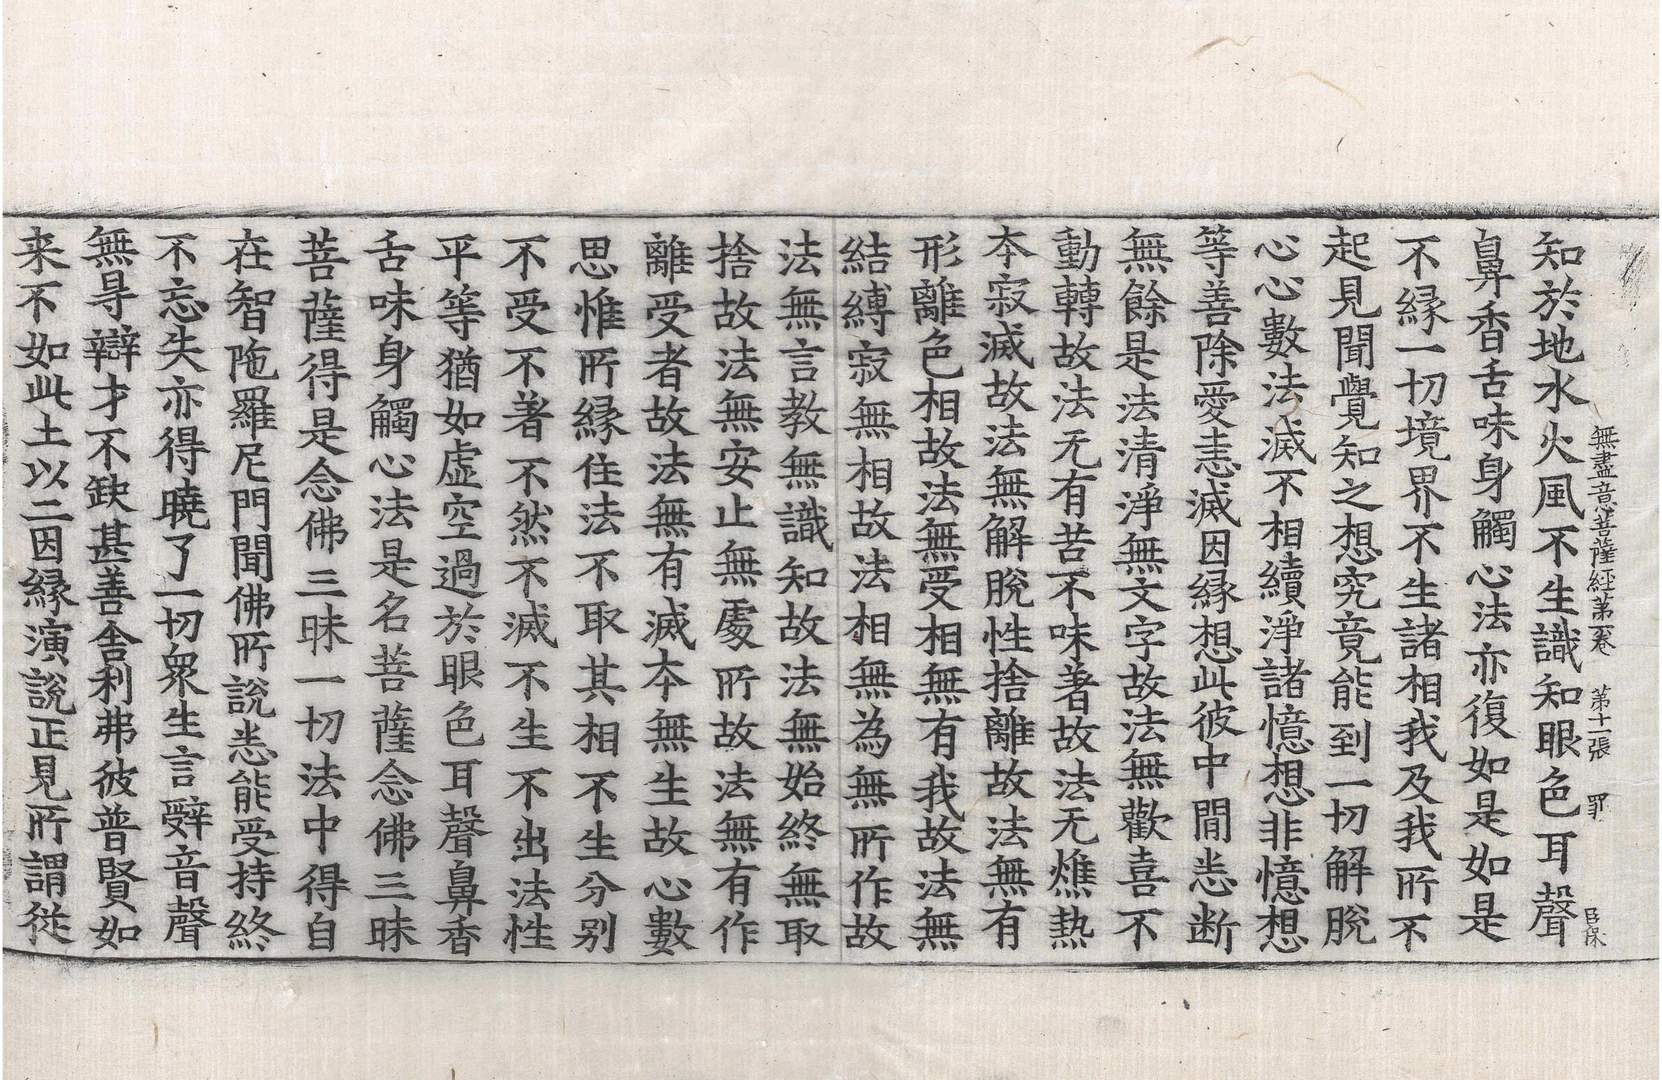 無盡意菩薩經第一卷　第十一張　罪　臣保
知於地水火風不生識知眼色耳聲
鼻香舌味身觸心法亦復如是如是
不緣一切境界不生諸相我及我所不
起見聞覺知之想究竟能到一切解脫
心心數法滅不相續淨諸憶想非憶想
等善除愛恚滅因緣想此彼中間悉断
無餘是法清淨無文字故法無歡喜不
動轉故法无有苦不味著故法无燋熱
本寂滅故法無解脫性捨離故法無有
形離色相故法無受相無有我故法無
結縛寂無相故法相無為無所作故
法無言教無識知故法無始終無取
捨故法無安止無處所故法無有作
離受者故法無有滅本無生故心數
思惟所緣住法不取其相不生分别
不受不著不然不滅不生不出法性
平等猶如虛空過於眼色耳聲鼻香
舌味身觸心法是名菩薩念佛三昧
菩薩得是念佛三昧一切法中得自
在智陁羅尼門聞佛所說悉能受持終
不忘失亦得曉了一切衆生言辝音聲
無㝵辯才不缺甚善舍利弗彼普賢如
来不如此土以二因緣演說正見所謂從